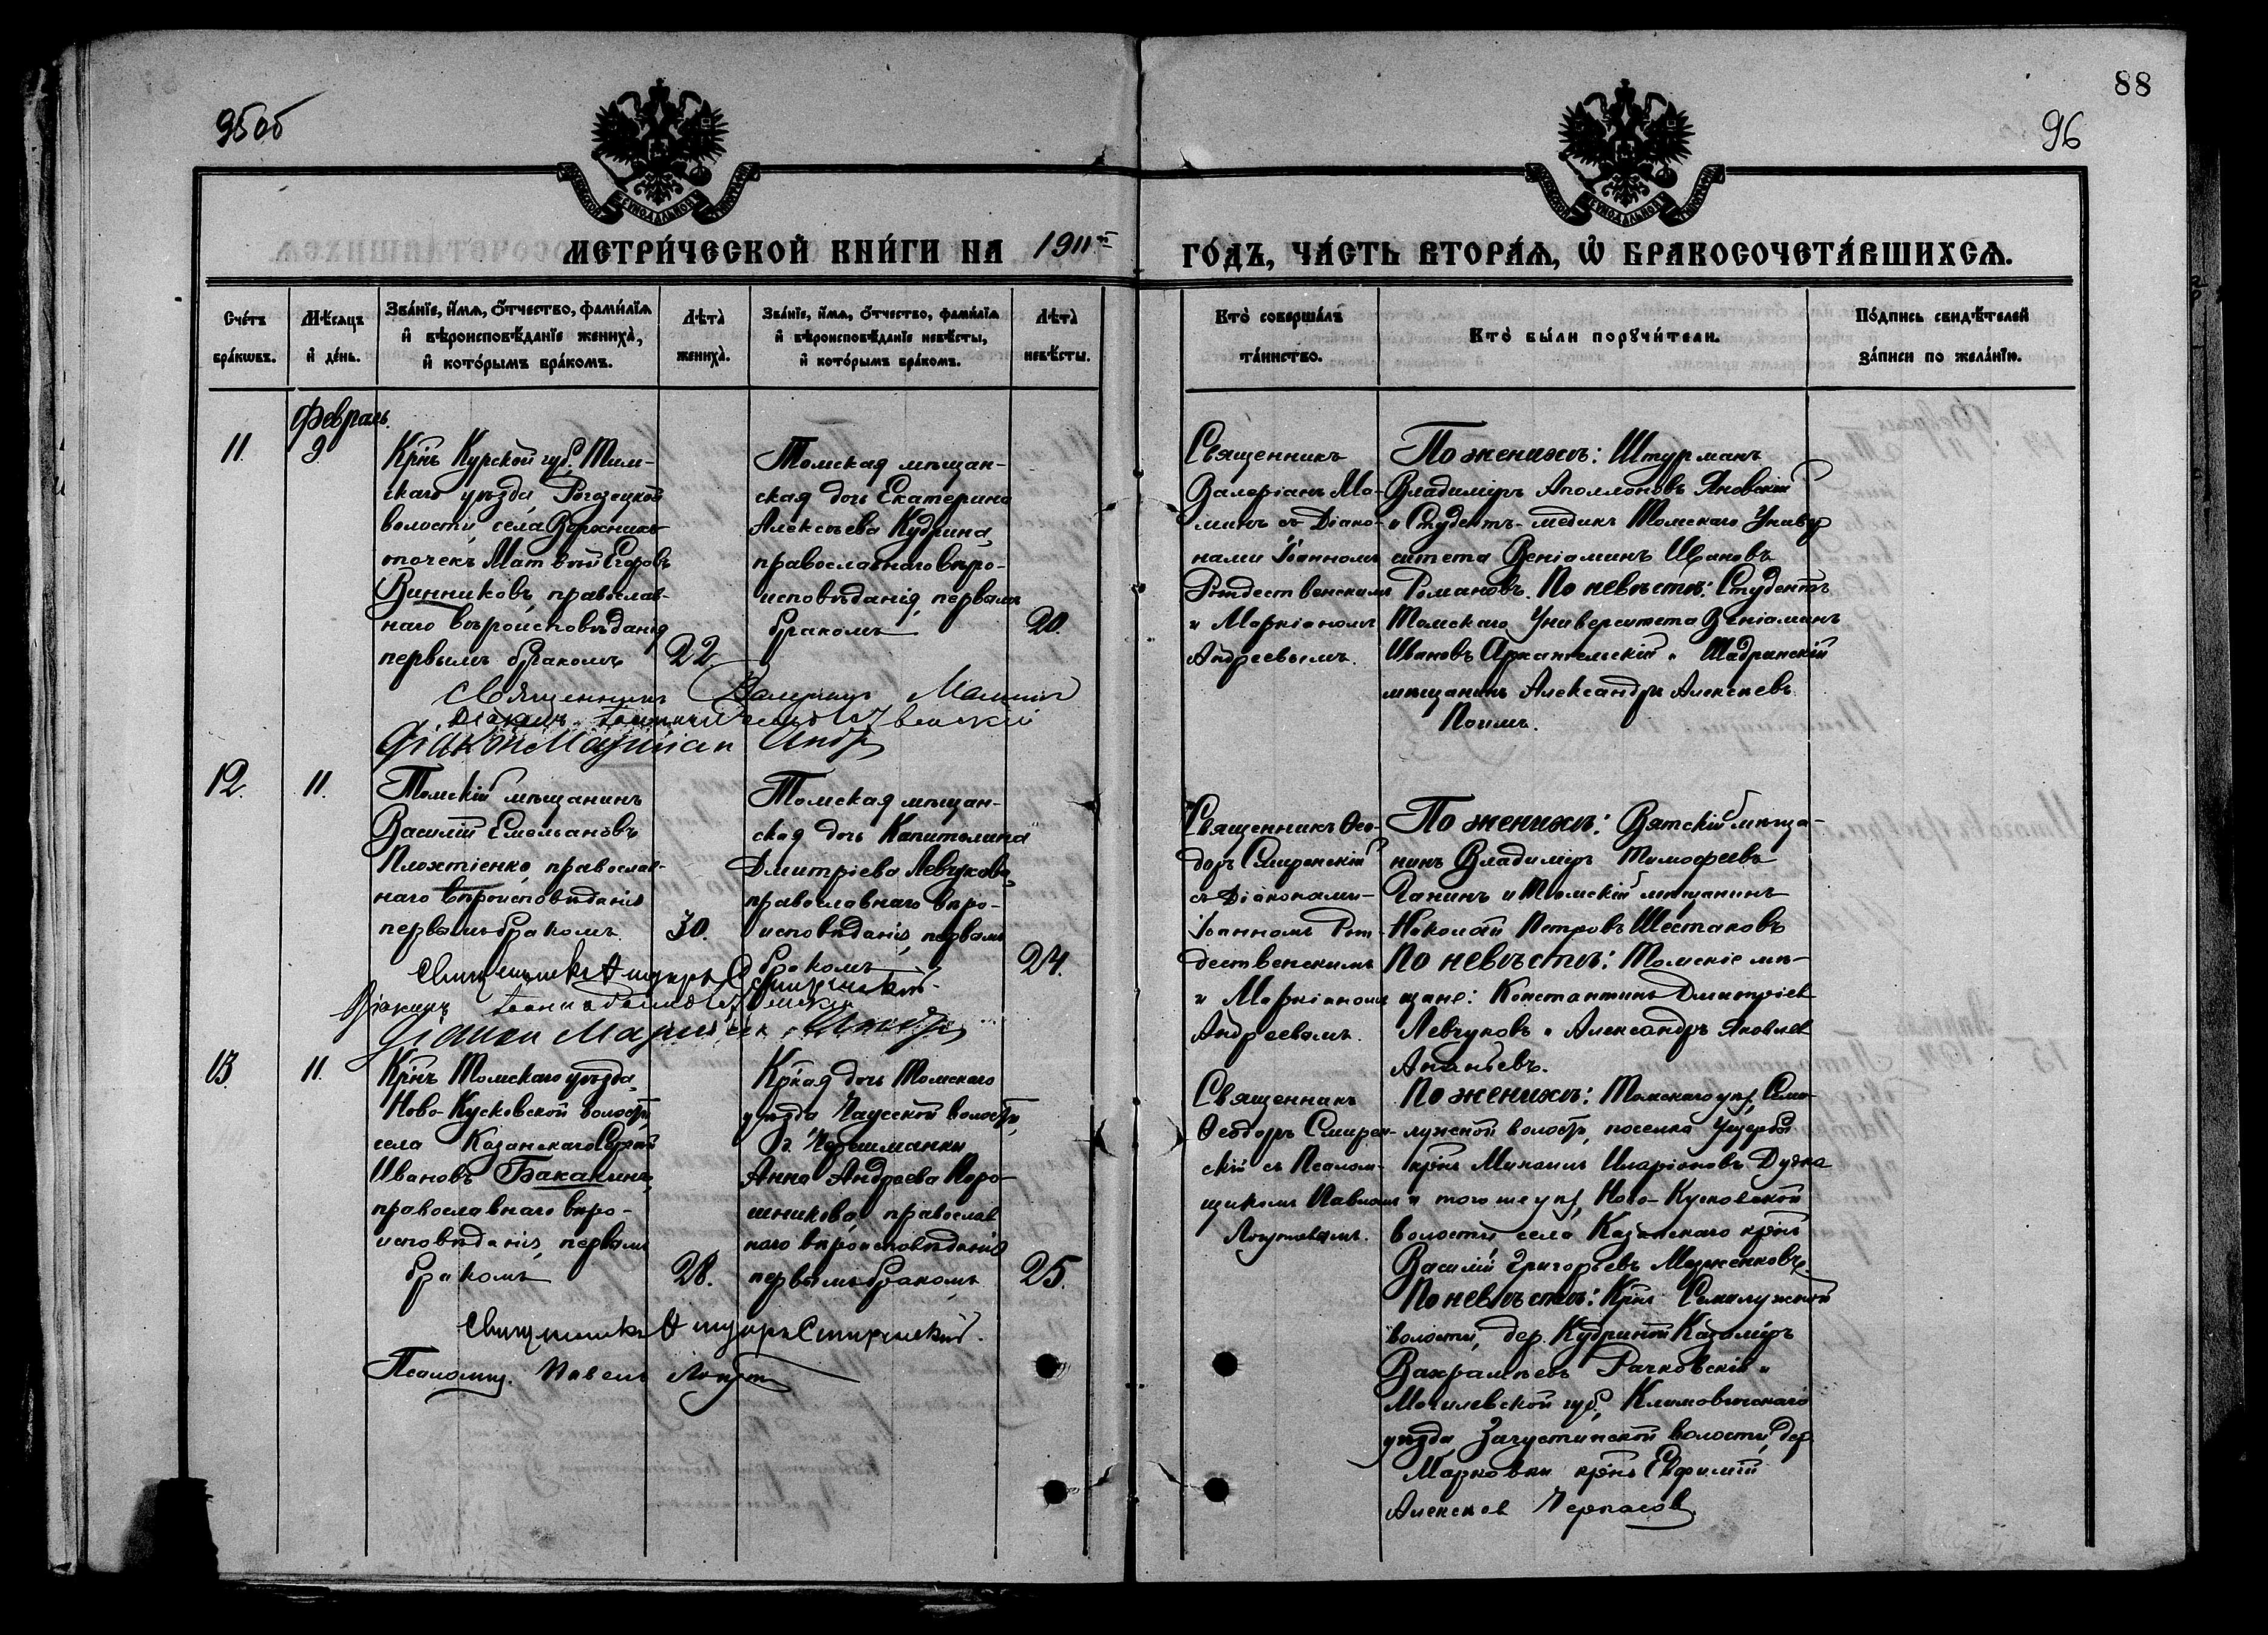 95об
88
96
МЕТРИ́ЧЕСКОЙ КНИ́ГИ НА 1911й
ГО́ДЪ, ЧА́СТЬ ВТОРА́Я, Ѡ БРАКОСОЧЕТА́ВШИХСЯ.
Сче́тъ бра́кѡвъ.
Мѣ́сяцъ и де́нь.
Зва́нїе, и́мя, ѻ́тчество, фами́лїя
и вѣроисповѣ́данїе жениха̀,
и кото́рымъ бра́комъ.
Лѣта̀ жениха̀.
Зва́нїе, и́мя, ѻ́тчество, фами́лїя
и вѣроисповѣ́данїе невѣ́сты,
и кото́рымъ бра́комъ.
Лѣта̀ невѣ́сты.
Кто̀ соверша́лъ
та́инство.
Кто̀ бы́ли порꙋчи́тели.
По́дпись свидѣ́телей
за́писи по жела́нїю.
Февраль.
11.
9.
Крнъ Курской губ. Тим-
скаго уѣзда, Рогозецкой
волости, села
Матвѣй Егоровъ
Винниковъ, православ-
наго вѣроисповѣданія
первымъ бракомъ
22
Томская мѣщан-
ская дочь Екатерина
Алексѣева Кудрина,
православнаго вѣро-
исповѣданія, первымъ
бракомъ
20.
Священникъ
Валеріанъ Ма-
минъ съ Діако-
нами Іоанномъ
Рождественскимъ
и Маркіаномъ
Андреевымъ.
По женихѣ: Штурманъ
Владиміръ Аполлоновъ Яновскій
и Студентъ-медикъ Томскаго Универ
ситета Веніаминъ Ивановъ
Романовъ. По невѣстѣ: Студентъ
Томскаго Университета Веніаминъ
Ивановъ Архангельскій и Шадринскій
мѣщанинъ Александръ Алексѣевъ
Священникъ Валеріанъ Маминъ
Діаконъ Іоаннъ Рождественскій
Діаконъ Маркіан Андр
12.
11.
Томскій мѣщанинъ
Василій Емельяновъ
Плохтіенко, православ-
наго вѣроисповѣданія
первымъ бракомъ
30.
Томская мѣщан-
ская дочь Капитолина
Дмитріева Левчукова,
православнаго вѣро-
исповѣданія, первымъ
бракомъ
24.
Священникъ Ѳео-
доръ Смиренскій
съ Діаконами-
Іоанномъ Рож-
дественскимъ
и Маркіаномъ
Андреевымъ.
По женихѣ: Вятскій мѣща-
нинъ Владиміръ Тимофеевъ
Ганинъ и Томскій мѣщанинъ
Николай Петровъ Шестаковъ
По невѣстѣ: Томскіе мѣ-
щане: Константинъ Дмитріев
Левчуковъ и Александръ Яковлев
Ананьевъ.
Священникъ Ѳеодоръ Смиренскій.
Діаконъ Іоаннъ Рождественскій
Діакон Маркіан Андр
13.
11.
Крнъ Томскаго уѣзда,
Ново-Кусковской волости,
села Казанскаго Сергѣй
Ивановъ Бакакинъ,
православнаго вѣро-
исповѣданія, первымъ
бракомъ
28.
Кркая дочь Томскаго
уѣзда Чаусской волости,
Анна Андреева Воро-
шникова, православ
наго вѣроисповѣданія
первымъ бракомъ
25.
Священникъ
Ѳеодоръ Смирен-
скій съ Псалом-
щикомъ Павломъ
По женихѣ: Томскаго уѣз. Семи-
лужской волости, поселка
крнъ Михаилъ Иларіоновъ Дудка
и того же уѣз. Ново-Кусковской
волости села Казанскаго крнъ
Василій Григорьевъ
По невѣстѣ: Крнъ Семилужной
волости, дер. Кудриной Казиміръ
Вахрамѣевъ Рачковскій и
Могилевской губ., Климовичскаго
уѣзда Загустинской волости, дер.
Марковки крнъ Евфимій
Алексѣев Черкасов
Священникъ Ѳеодоръ Смиренскій.
Псаломщ. Павелъ